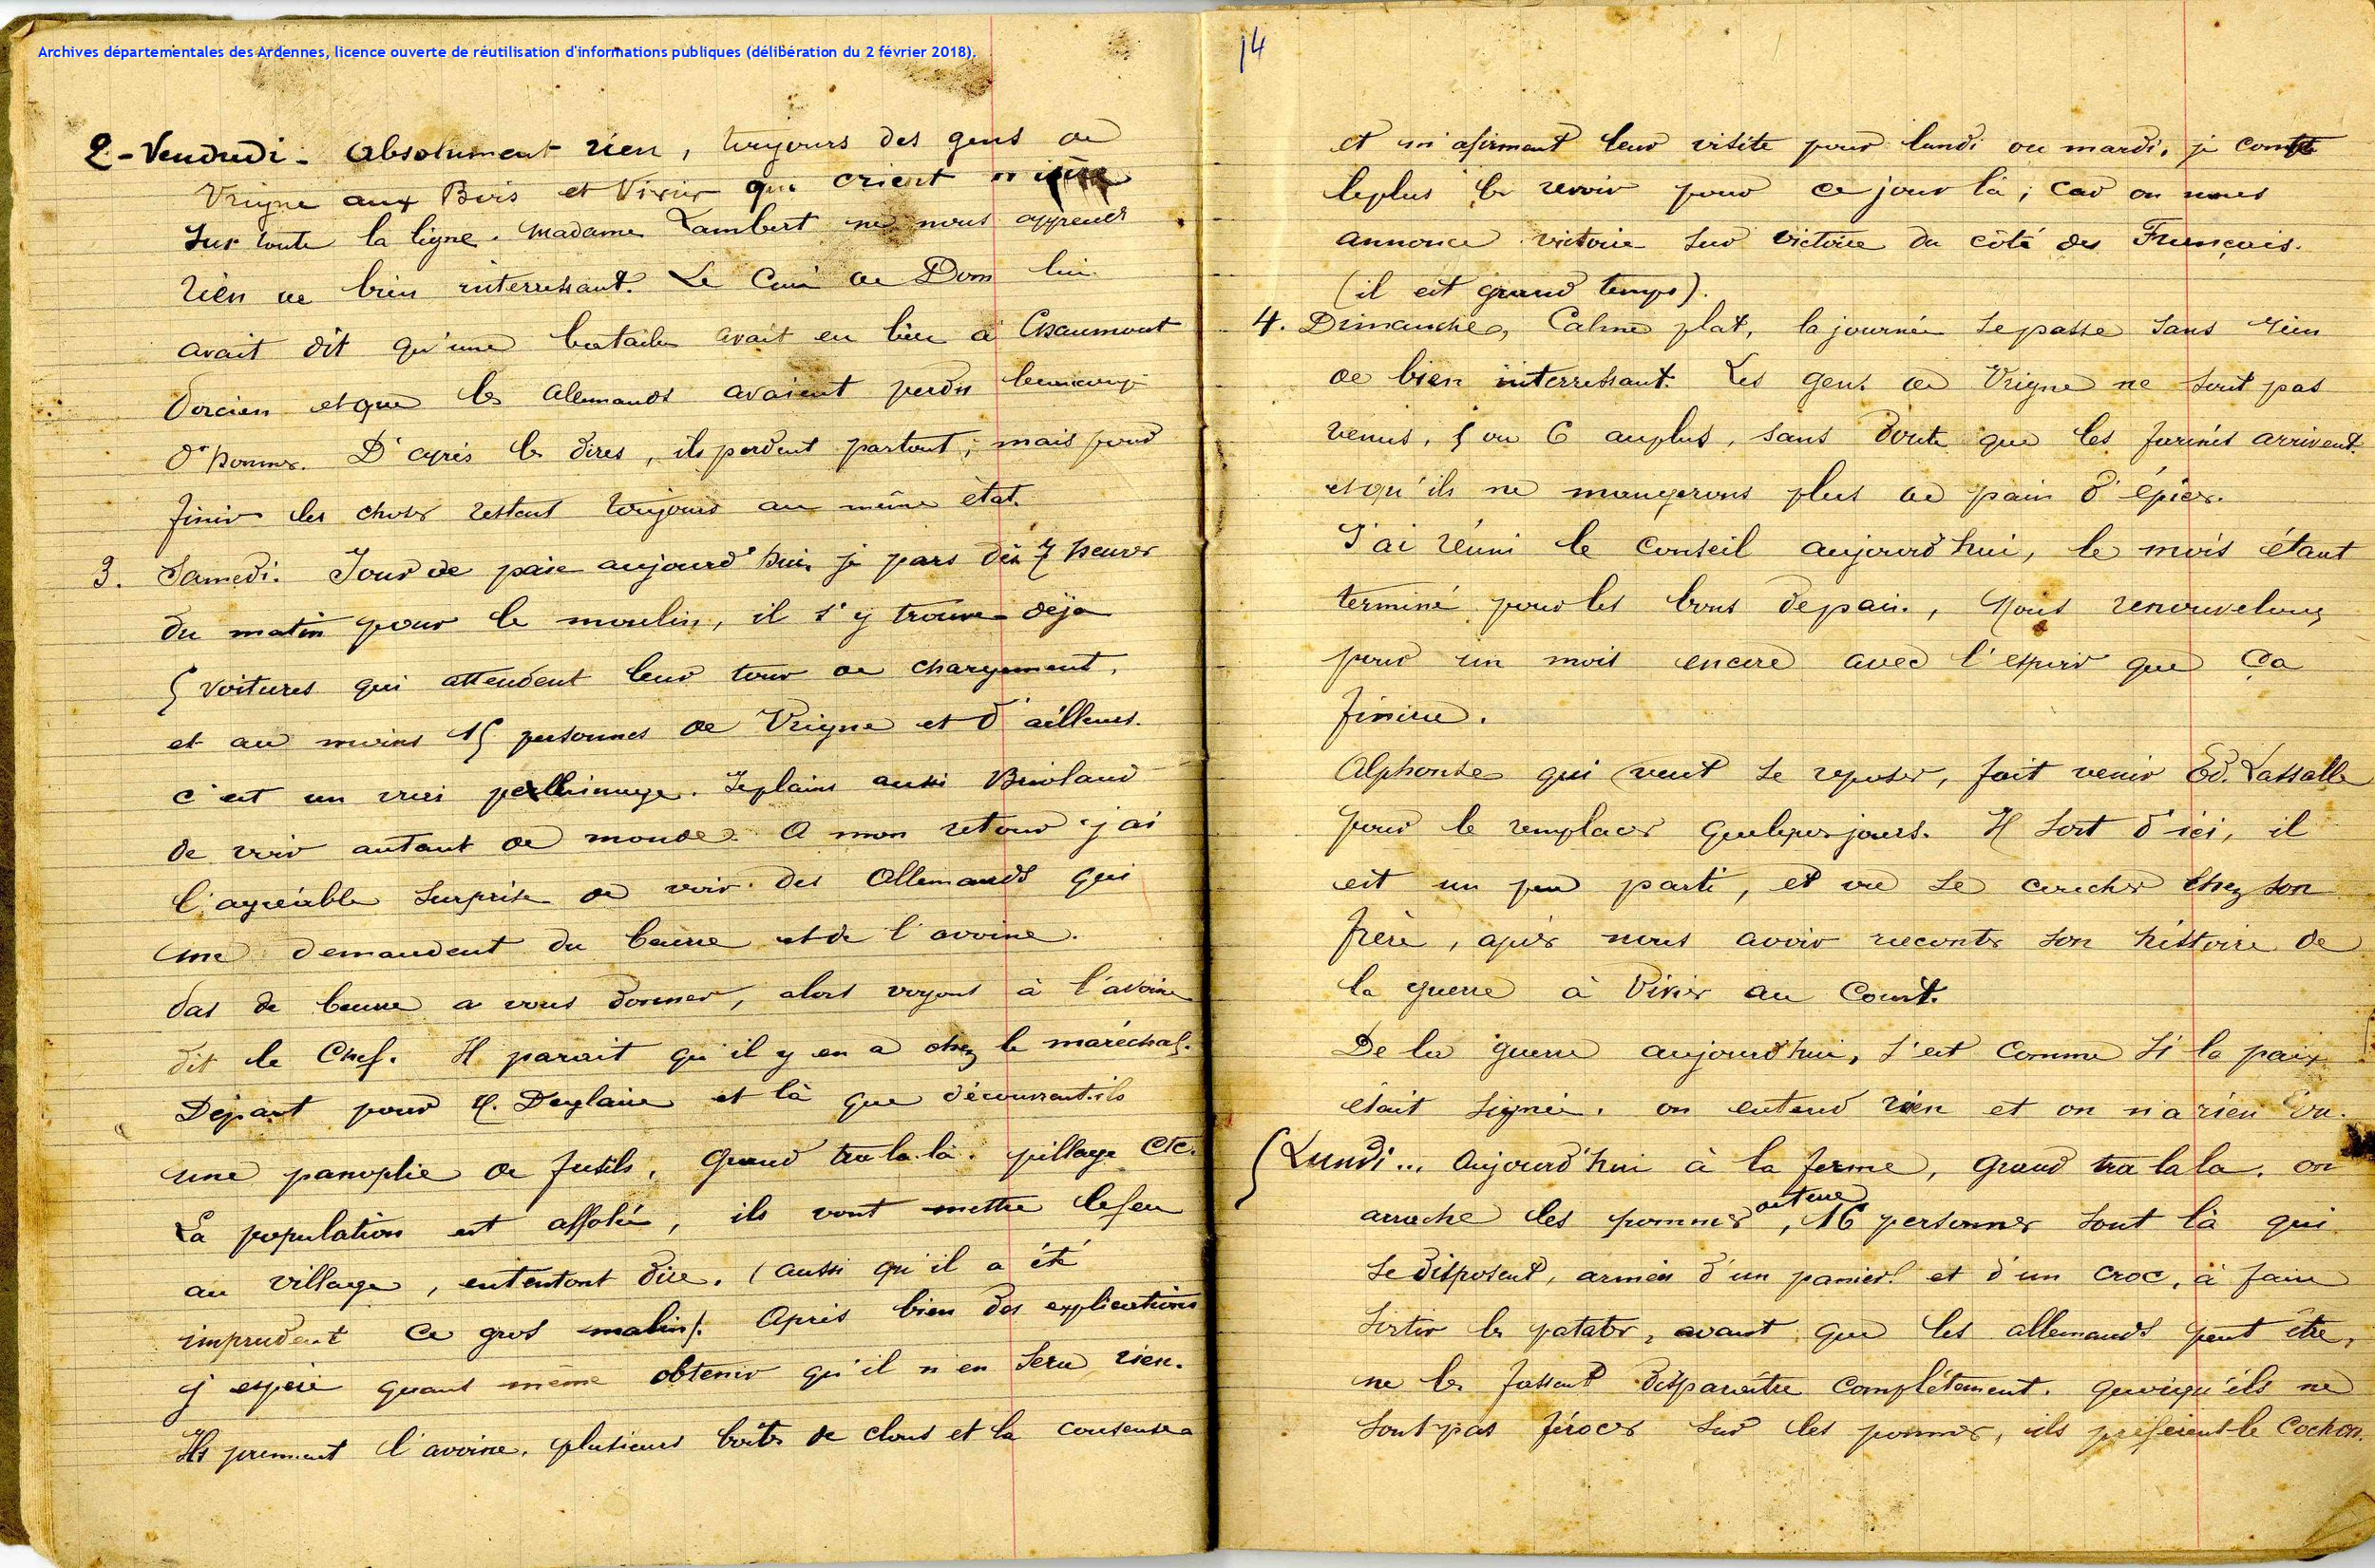 Archives départementales des Ardennes, licence ouverte de réutilisation d'informations publiques (délibération du 2 février 2018).
2 - Vendredi - Absolument rien, toujours des gens de
Vrigne aux Bois et Vivier qui crient misère
sur toute la ligne. Madame Lambert ne nous apprend
rien de bien interressant. Le Curé de Dom lui
avait dit qu'une bataille avait eu lieu à Chaumont
Porcien et que les Allemands avaient perdu beaucoup
d'hommes. D'après les dires, ils perdent partout; mais pour
finir les choses restent toujours au même état.
3. Samedi. Jour de paie aujourd'hui, je pars dès 7 heures
du matin pour le moulin, il s'y trouve déja
5 voitures qui attendent leur tour de chargement,
et au moins 15 personnes de Vrigne et d'ailleurs.
c'est un vrai pellerinage. Je plains aussi
de voir autant de monde. A mon retour j'ai
l'agréable surprise de voir des Allemands qui
me demandent du beurre et de l'avoine.
Pas de beurre a vous donner, alors voyons à l'avoine
dit le Chef. Il parait qu'il y en a chez le maréchal.
Départ pour et là que découvrent-ils
une panoplie de fusils, Grand tra la la. pillage etc.
La population est affolée, ils vont mettre le feu
au village, ententont dire. (aussi qu'il a été
imprudent ce gros malin). Après bien des explications
j'espère quant même obtenir qu'il n'en sera rien.
Ils prennent l'avoine, plusieurs boîtes de clous et la
14
et m'afirment leur visite pour lundi ou mardi, je compte
le plus les revoir pour ce jour là; car on nous
annonce victoire sur victoire du côté des Français.
(il est grand temps).
4. Dimanche, Calme plat, la journée se passe sans rien
de bien interressant. Les gens de Vrigne ne sont pas
venus, 5 ou 6 au plus, sans doute que les farines arrivent
et qu'ils ne mangerons plus de pain d'épices.
J'ai réuni le Conseil aujourd'hui, le mois étant
terminé pour les bons de pain, Nous renouvelons
pour un mois encore avec l'espoir que ça
finira.
Alphonse qui veut se reposer, fait venir Ed. Lassalle
pour le remplacer quelques jours. Il sort d'ici, il
est un peu parti, et va se coucher chez son
frère, après nous avoir raconté son histoire de
la guerre à Vivier au Court.
De la guerre aujourd'hui, s'est comme si la paix
était signée. on entend rien et on n'a rien vu.
5 Lundi... Aujourd'hui à la ferme, grand tra la la. on
arrache les pommes de terre, 16 personnes sont là qui
se disposent, armées d'un panier et d'un croc, à faire
sortir les patates, avant que les allemands peut être,
ne les fassent disparaître complètement. quoiqu'ils ne
sont pas féroces sur les pommes, ils préfèrent le Cochon.